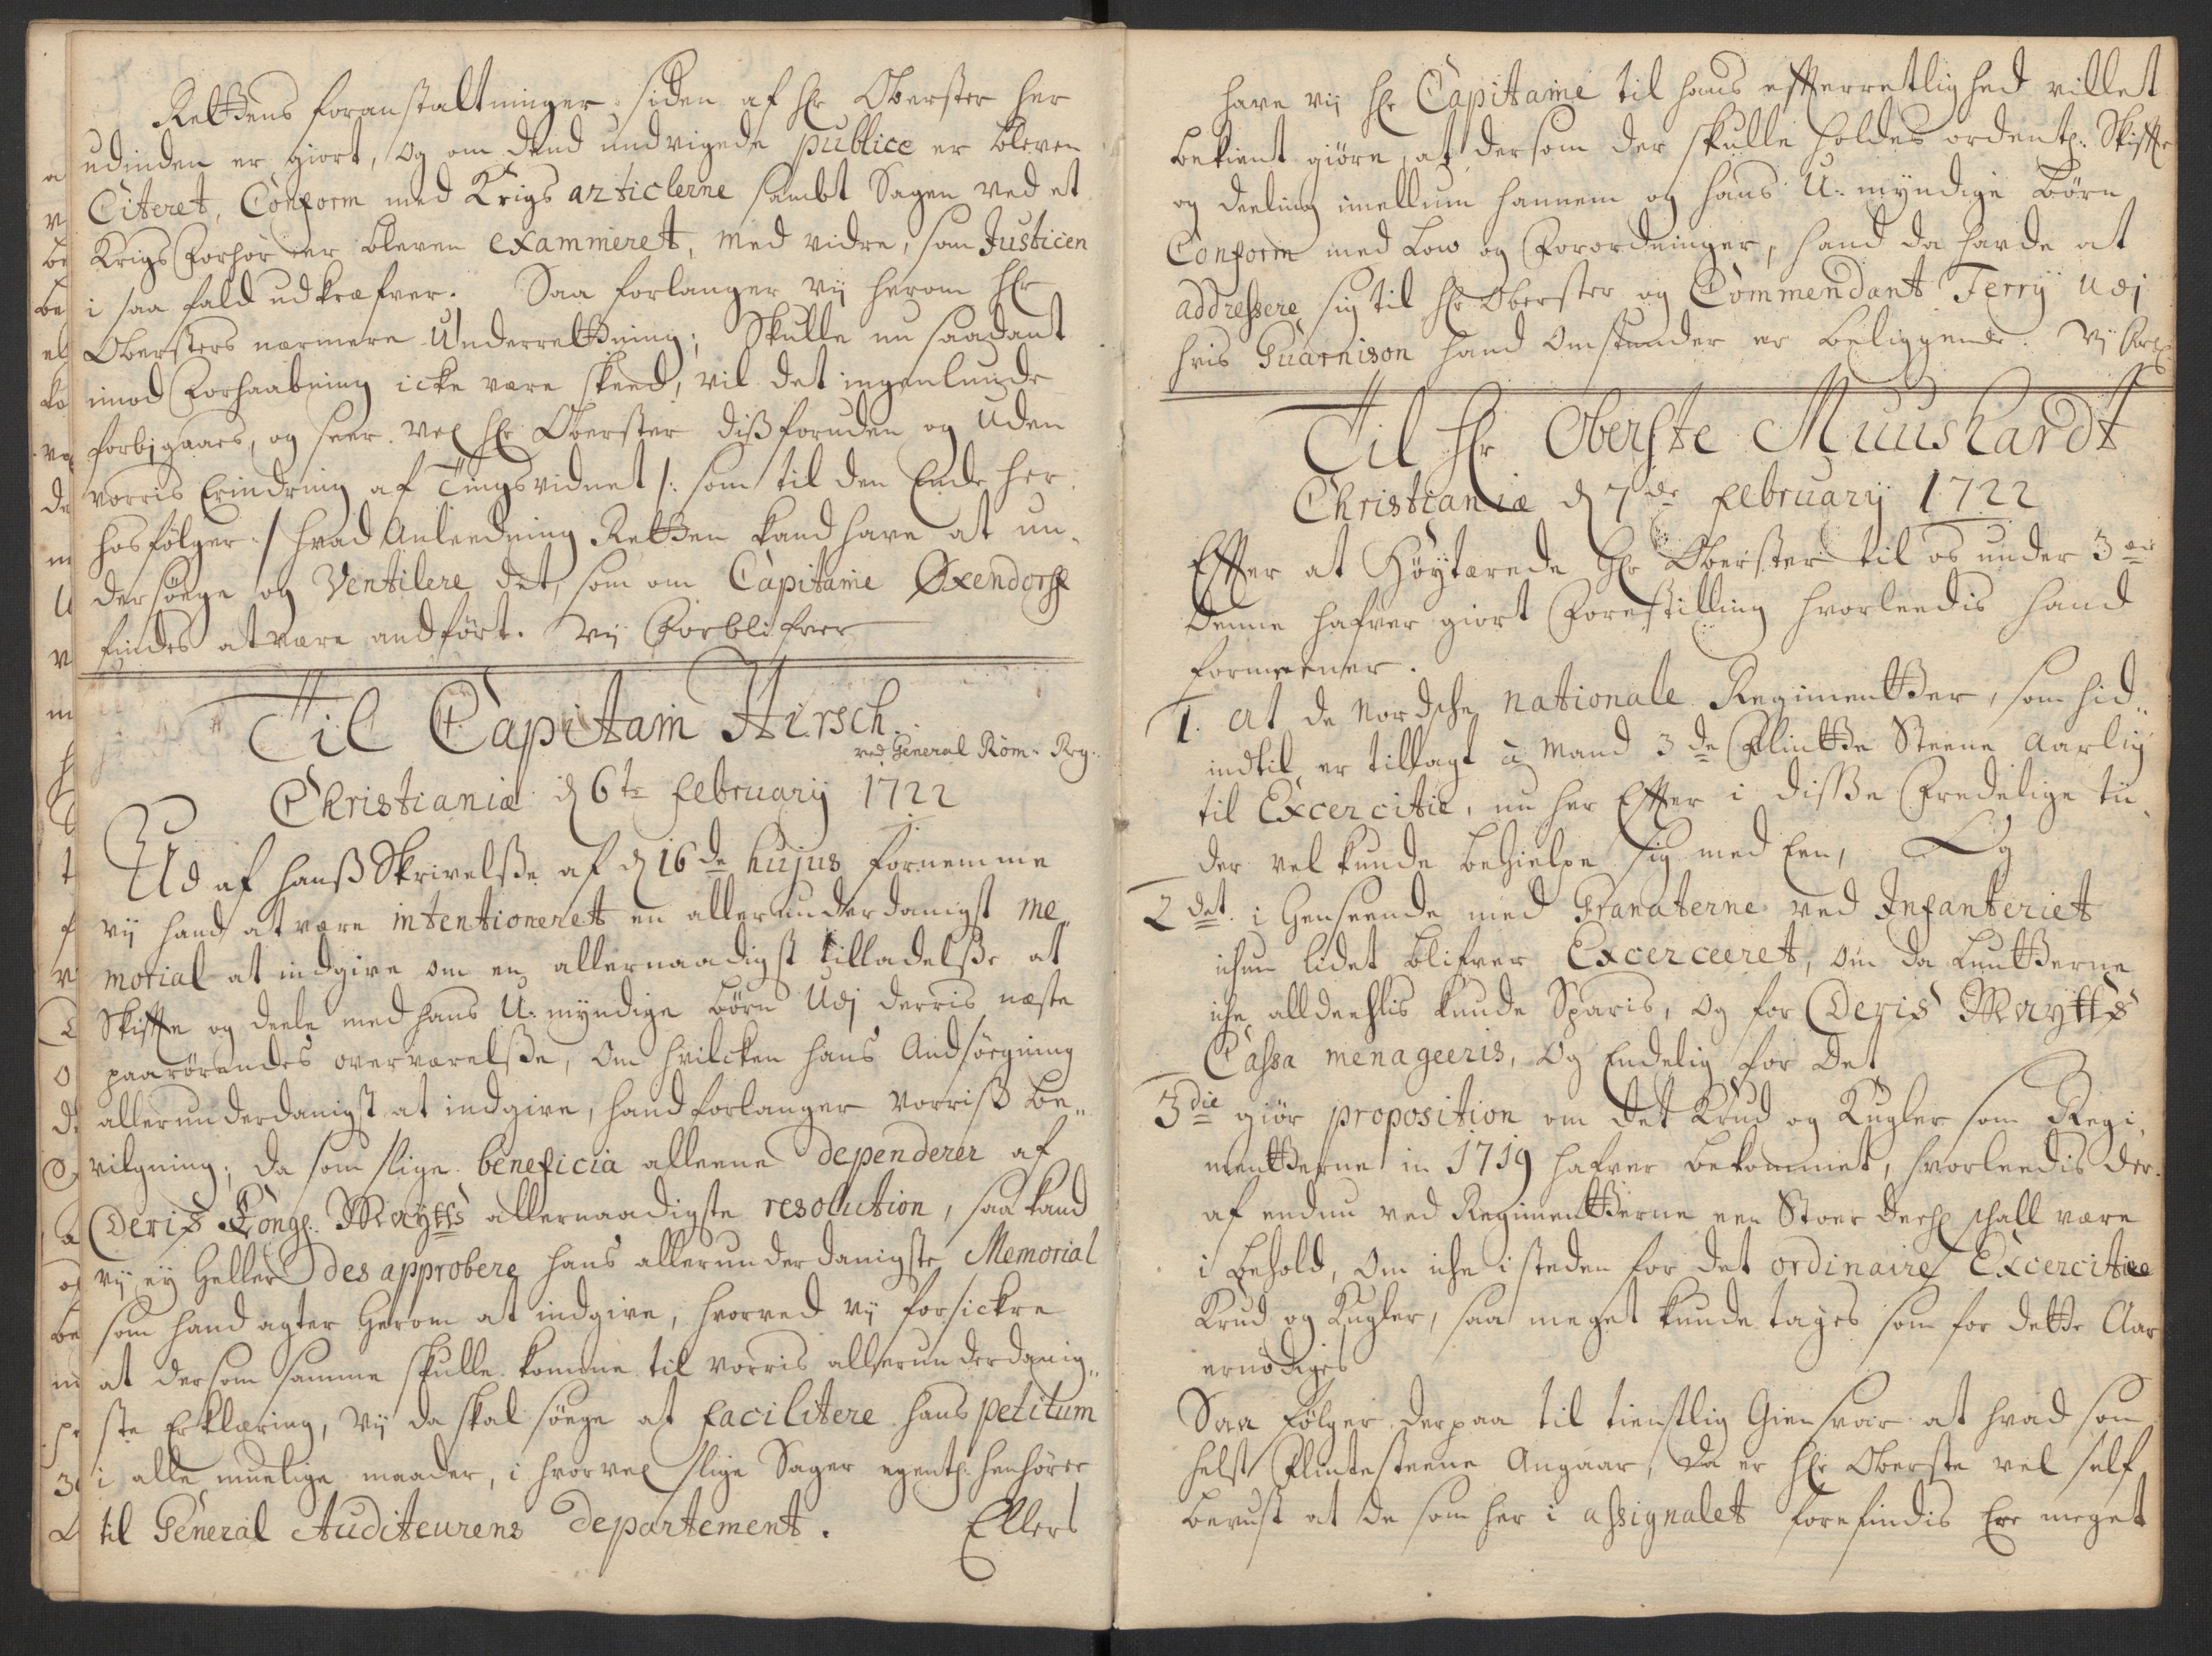 Rettens foranstaltninger siden af Hr Oberster her
udinden er giort, og om dend undvigede publice er bleven
Citeret, Conform med Krigs articlerne sambt Sagen ved et
Krigs Forhør er bleven examineret, med vidre, som Justicen
i saa fald udkræfver. Saa forlanger vij herom Hr
Obersters nærmere Underretning; Skulle nu saadant
imod Forhaabning icke være skeed, vil det ingenlunde
forbigaaes, og seer vel Hr Oberster dissforuden og uden
vorris Erindring af Tingsvidnet /: som til den Ende her
hosfølger :/ hvad Anleedning Retten kand have at un-
dersøege og Ventilere det, som om Capitaine Øxendorff
findes at være andført. Vij Forblifver
Til Capitain Hirsch.
ved General Röm: Reg:
Christiania d 6te February 1722
Ud af hanss Skrivelsse af d 16de hujus fornemme
vij hand at være intentioneret en allerunderdanigst me„
morial at indgive om en allernaadigst tilladelsse at
Skiffte og deele med hans U: myndige børn Udj derris næste
paarørendes overværelsse, Om hvilcken hans Andsøegning
allerunderdanigst at indgive, hand forlanger Vorriss be„
vilgning; da som slige beneficia alleene dependerer af
Deris Kongl: Maytts allernaadigste resolution, saa kand
vij ey heller des approbere hans allerunderdanigste Memorial
som hand agter herom at indgive, hvorved vij forsickre
at dersom samme skulle komme til vorris allerunderdanig„
ste Erklæring, Vij da skal søege at facilitere hans petitum
i alle muelige maader, i hvorvel slige Sager egentl: henhører
til General Auditeurens departement. Ellers
have vij Hr Capitaine til hans effterretlighed villet
bekient giøre, at dersom der skulle holdes ordentl: Skiffte
og deeling imellum hannem og hans U: myndige børn
Conform med Low og Forordninger, hand da havde at
addressere sig til Hr Oberster og Commendant Ferry Udj
hvis Guarnison hand Omstunder er beliggende. Vij Forbl:
Til Hr Oberste Muushardt
Christiania d 7de February 1722
Effter at Høytærede Hr Oberster til os under 3die
denne hafver giort Forestilling hvorleedis hand
formeener.
1. At de Nordsche nationale Regimentter, som hid„
indtil er tillagt à Mand 3de Flintte Steene Aarlig
til Excercitie, nu her Effter i disse Fredelige tii„
der vel kunde behielpe sig med Een, Og
2det. i Henseende med Granaterne ved Infanteriet
ichun lidet blifver Excerceeret, om da Luntterne
iche alldeelis kunde Sparis, og for Deris Maytts
Cassa menageeris, Og Endelig for det
3die giør proposition om det Krud og Kugler som Regi„
mentterne in 1719 hafver bekommet, hvorleedis der„
af endnu ved Regimentterne een Stoer deehl schall være
i behold, Om iche isteden for det ordinaire Excercitie
Krud og Kugler, saa meget kunde tages som for dette Aar
ernødiges
Saa følger derpaa til tienstlig Giensvar at hvad som
helst Flintesteene Angaar, da er Hr Oberste vel self
bevust at de som her i assignalet forefindis Ere meget